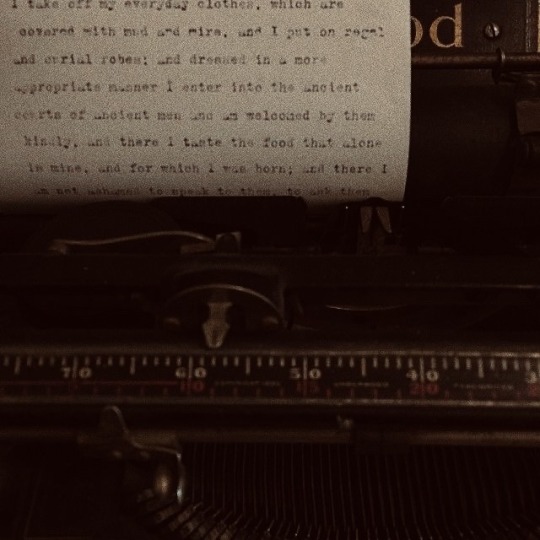 I take off my everyday clothes, which are
covered with mud and mire, and I put on regal
and curial robes; and dressed in a more
appropriate manner I enter into the ancient
courts of ancient men and am welcomed by them
kindly, and there I taste the food that alone
is mine, and for which I was born; and there I
am not ashamed to speak to them, to ask them
od
70 60 50 40 3